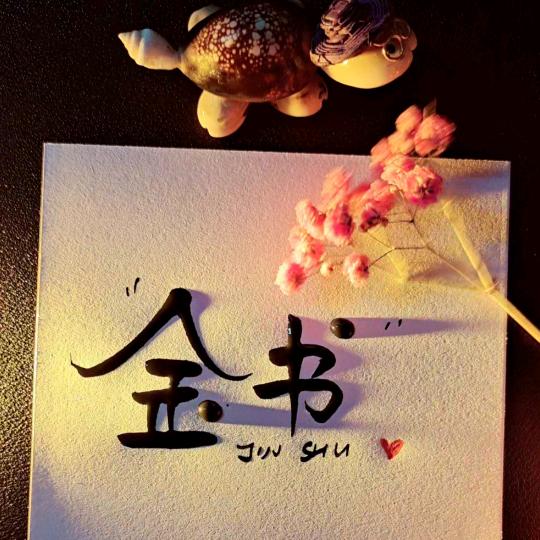 "金书"
JIN SHU